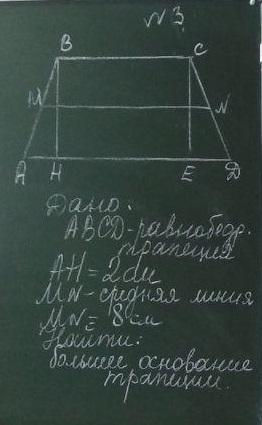 № 3.
B C
M N
A H E D
Дано:
ABCD - равнобедр.
трапеция
AH = 2 см
MN - средняя линия
MN = 8 см
Найти:
большее основание
трапеции.